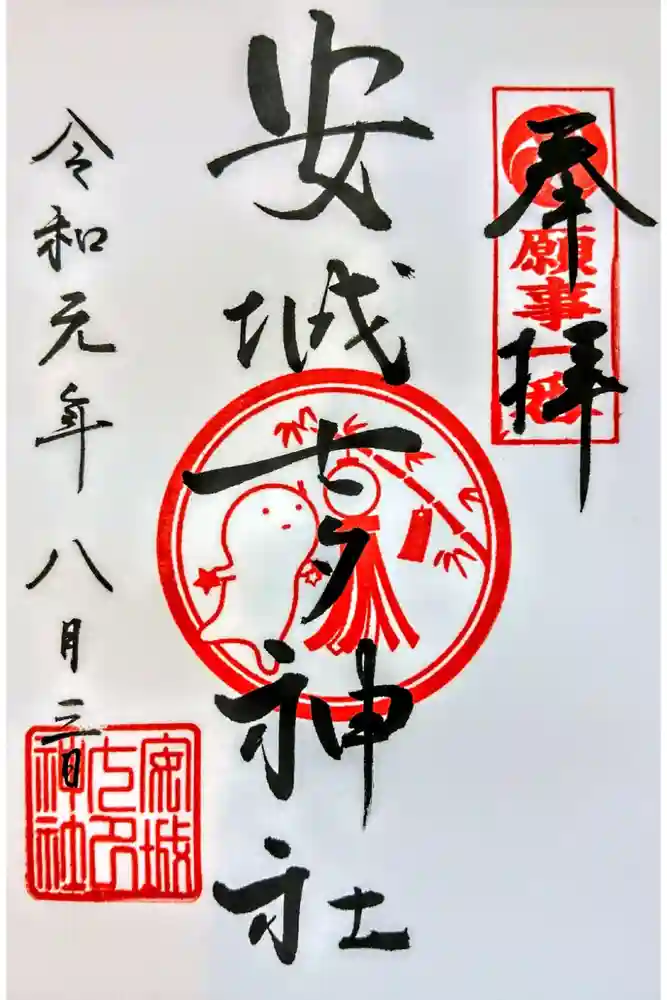 奉拝
願事
安城七夕神社
令和元年 八月三日
安城
七夕
神社